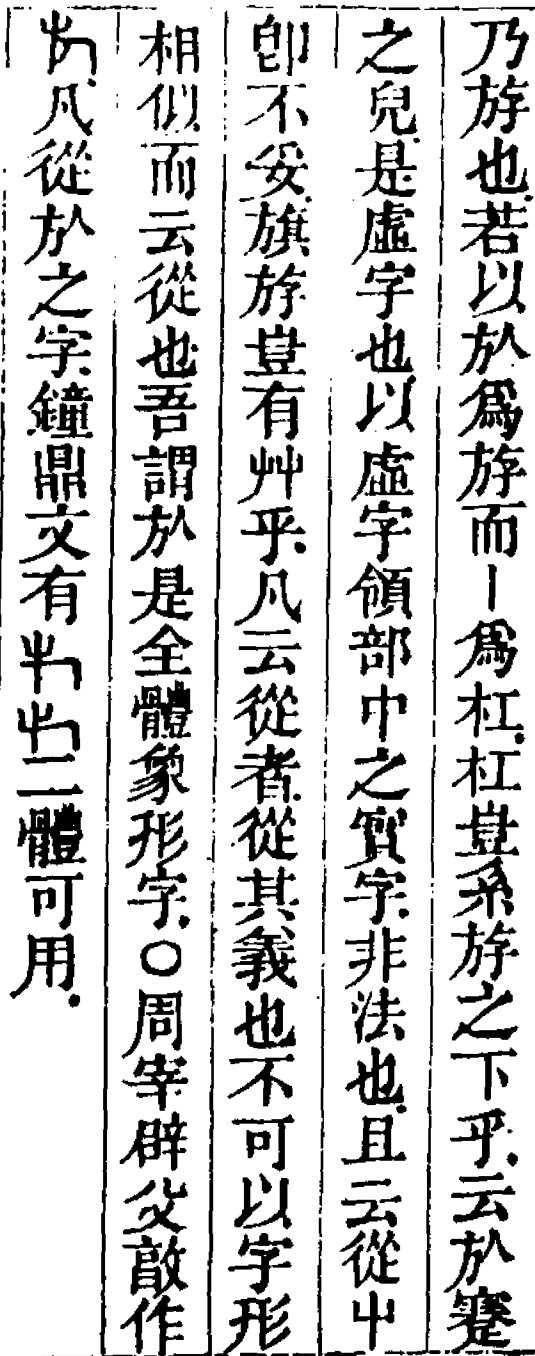 乃斿也.若以㫃爲斿而丨爲杠.杠豈系斿之下乎.云㫃蹇
之皃.是虛字也以虛字領部中之實字.非法也.且云從屮
卽不妥.旗斿豈有艸乎.凡云從者.從其義也不可以字形
相似而云從也吾謂㫃是全體象形字.〇周宰辟父敦作
凡從㫃之字.鐘鼎文有二體可用.